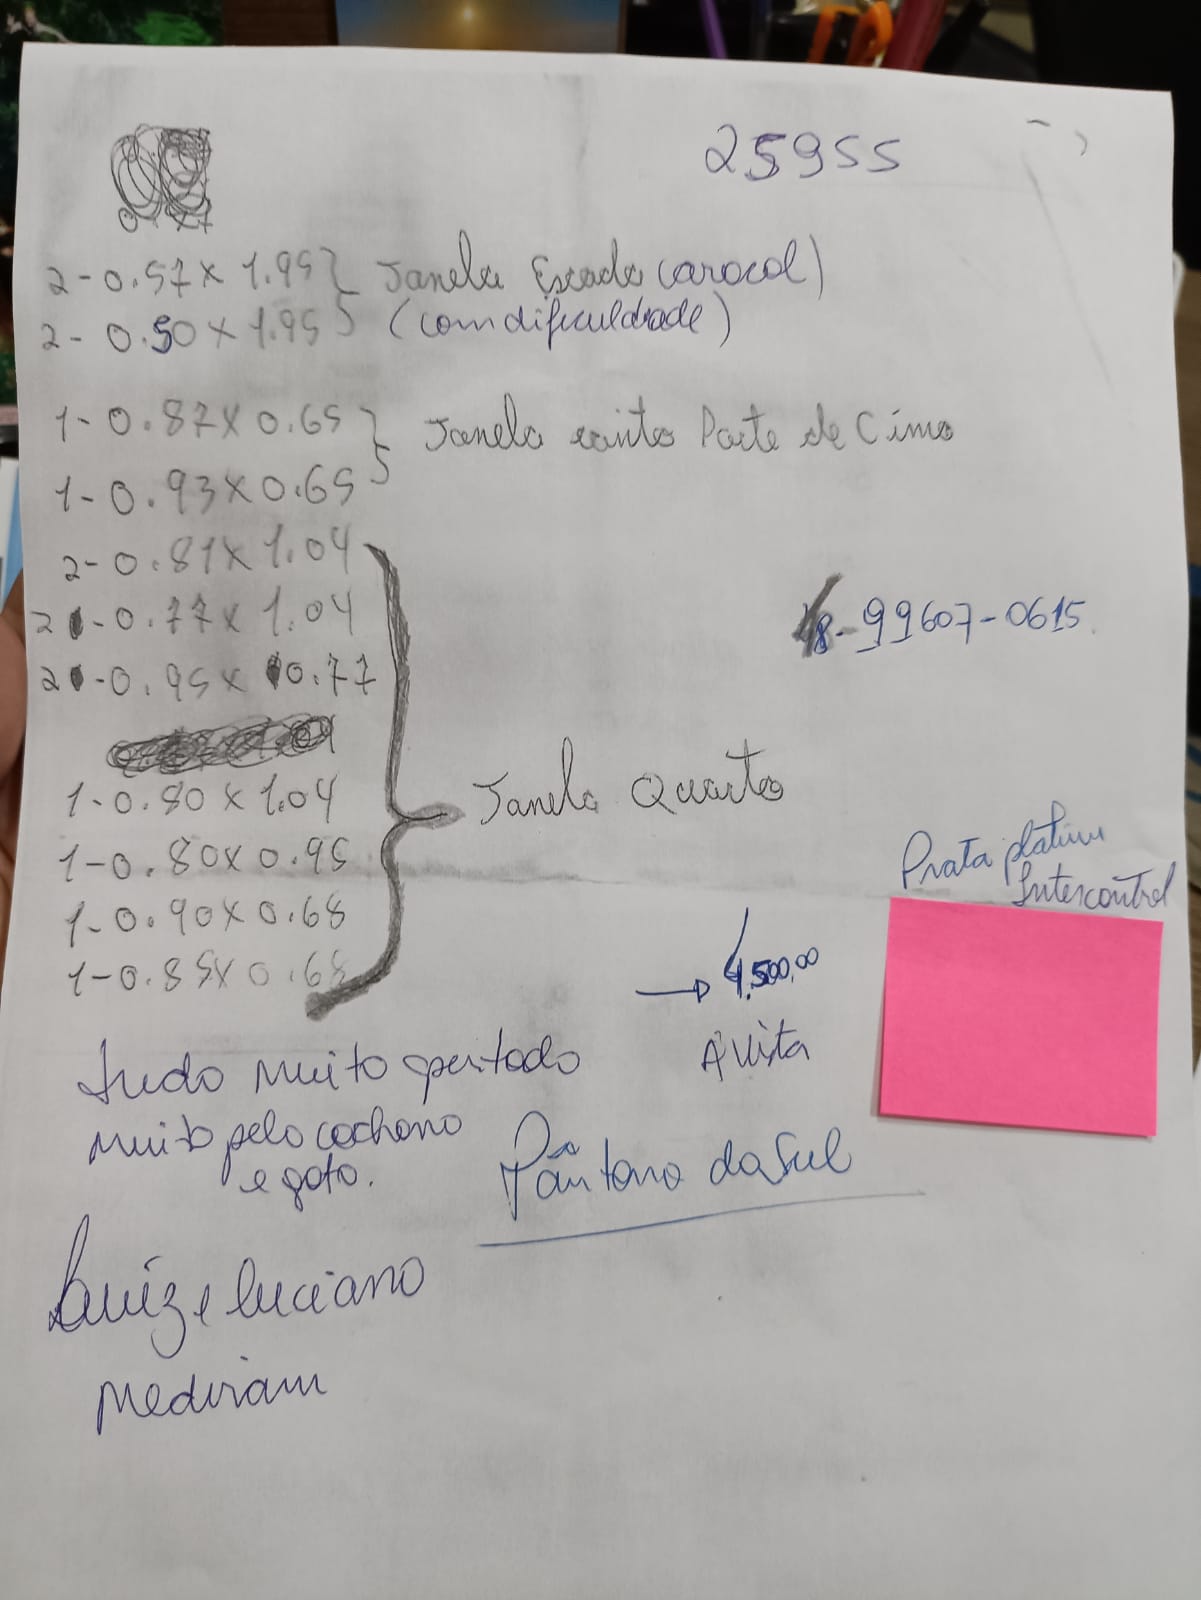 25955
2-0.57x1.95 } Janela Escada caracol)
2-0.50x1.95 (com dificuldade)
1-0.87x0.65 } Janela canto Parte de Cima
1-0.93x0.65
2-0.81x1.04
2-0.77x1.04
48-99607-0615
2-0.95x0.77
1-0.80x1.04
Janela Quarto
1-0.80x0.95
Prata platium
Intercontrol
1-0.90x0.68
1-0.85x0.68
→ 4.500,00
À Vista
tudo muito apertado
muito pelo cachorro
e gato.
Pântano do Sul
Luiz e Luciano
mediram